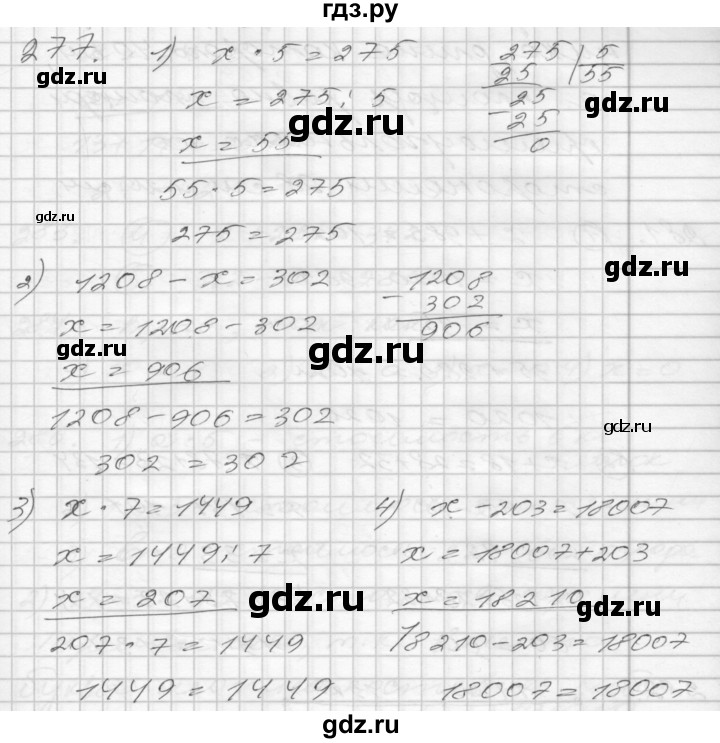 гдз.ру
277. 1) x · 5 = 275
x = 275 : 5
x = 55
55 · 5 = 275
275 = 275
275 | 5
25 55
25
- 25
0
2) 1208 - x = 302
x = 1208 - 302
x = 906
1208 - 906 = 302
302 = 302
1208
- 302
906
3) x · 7 = 1449
x = 1449 : 7
x = 207
207 · 7 = 1449
1449 = 1449
4) x - 203 = 18007
x = 18007 + 203
x = 18210
18210 - 203 = 18007
18007 = 18007
gdz.ru
gdz.ru
gdz.ru
gdz.ru
gdz.ru
gdz.ru
gdz.ru
gdz.ru
gdz.ru
gdz.ru
gdz.ru
gdz.ru